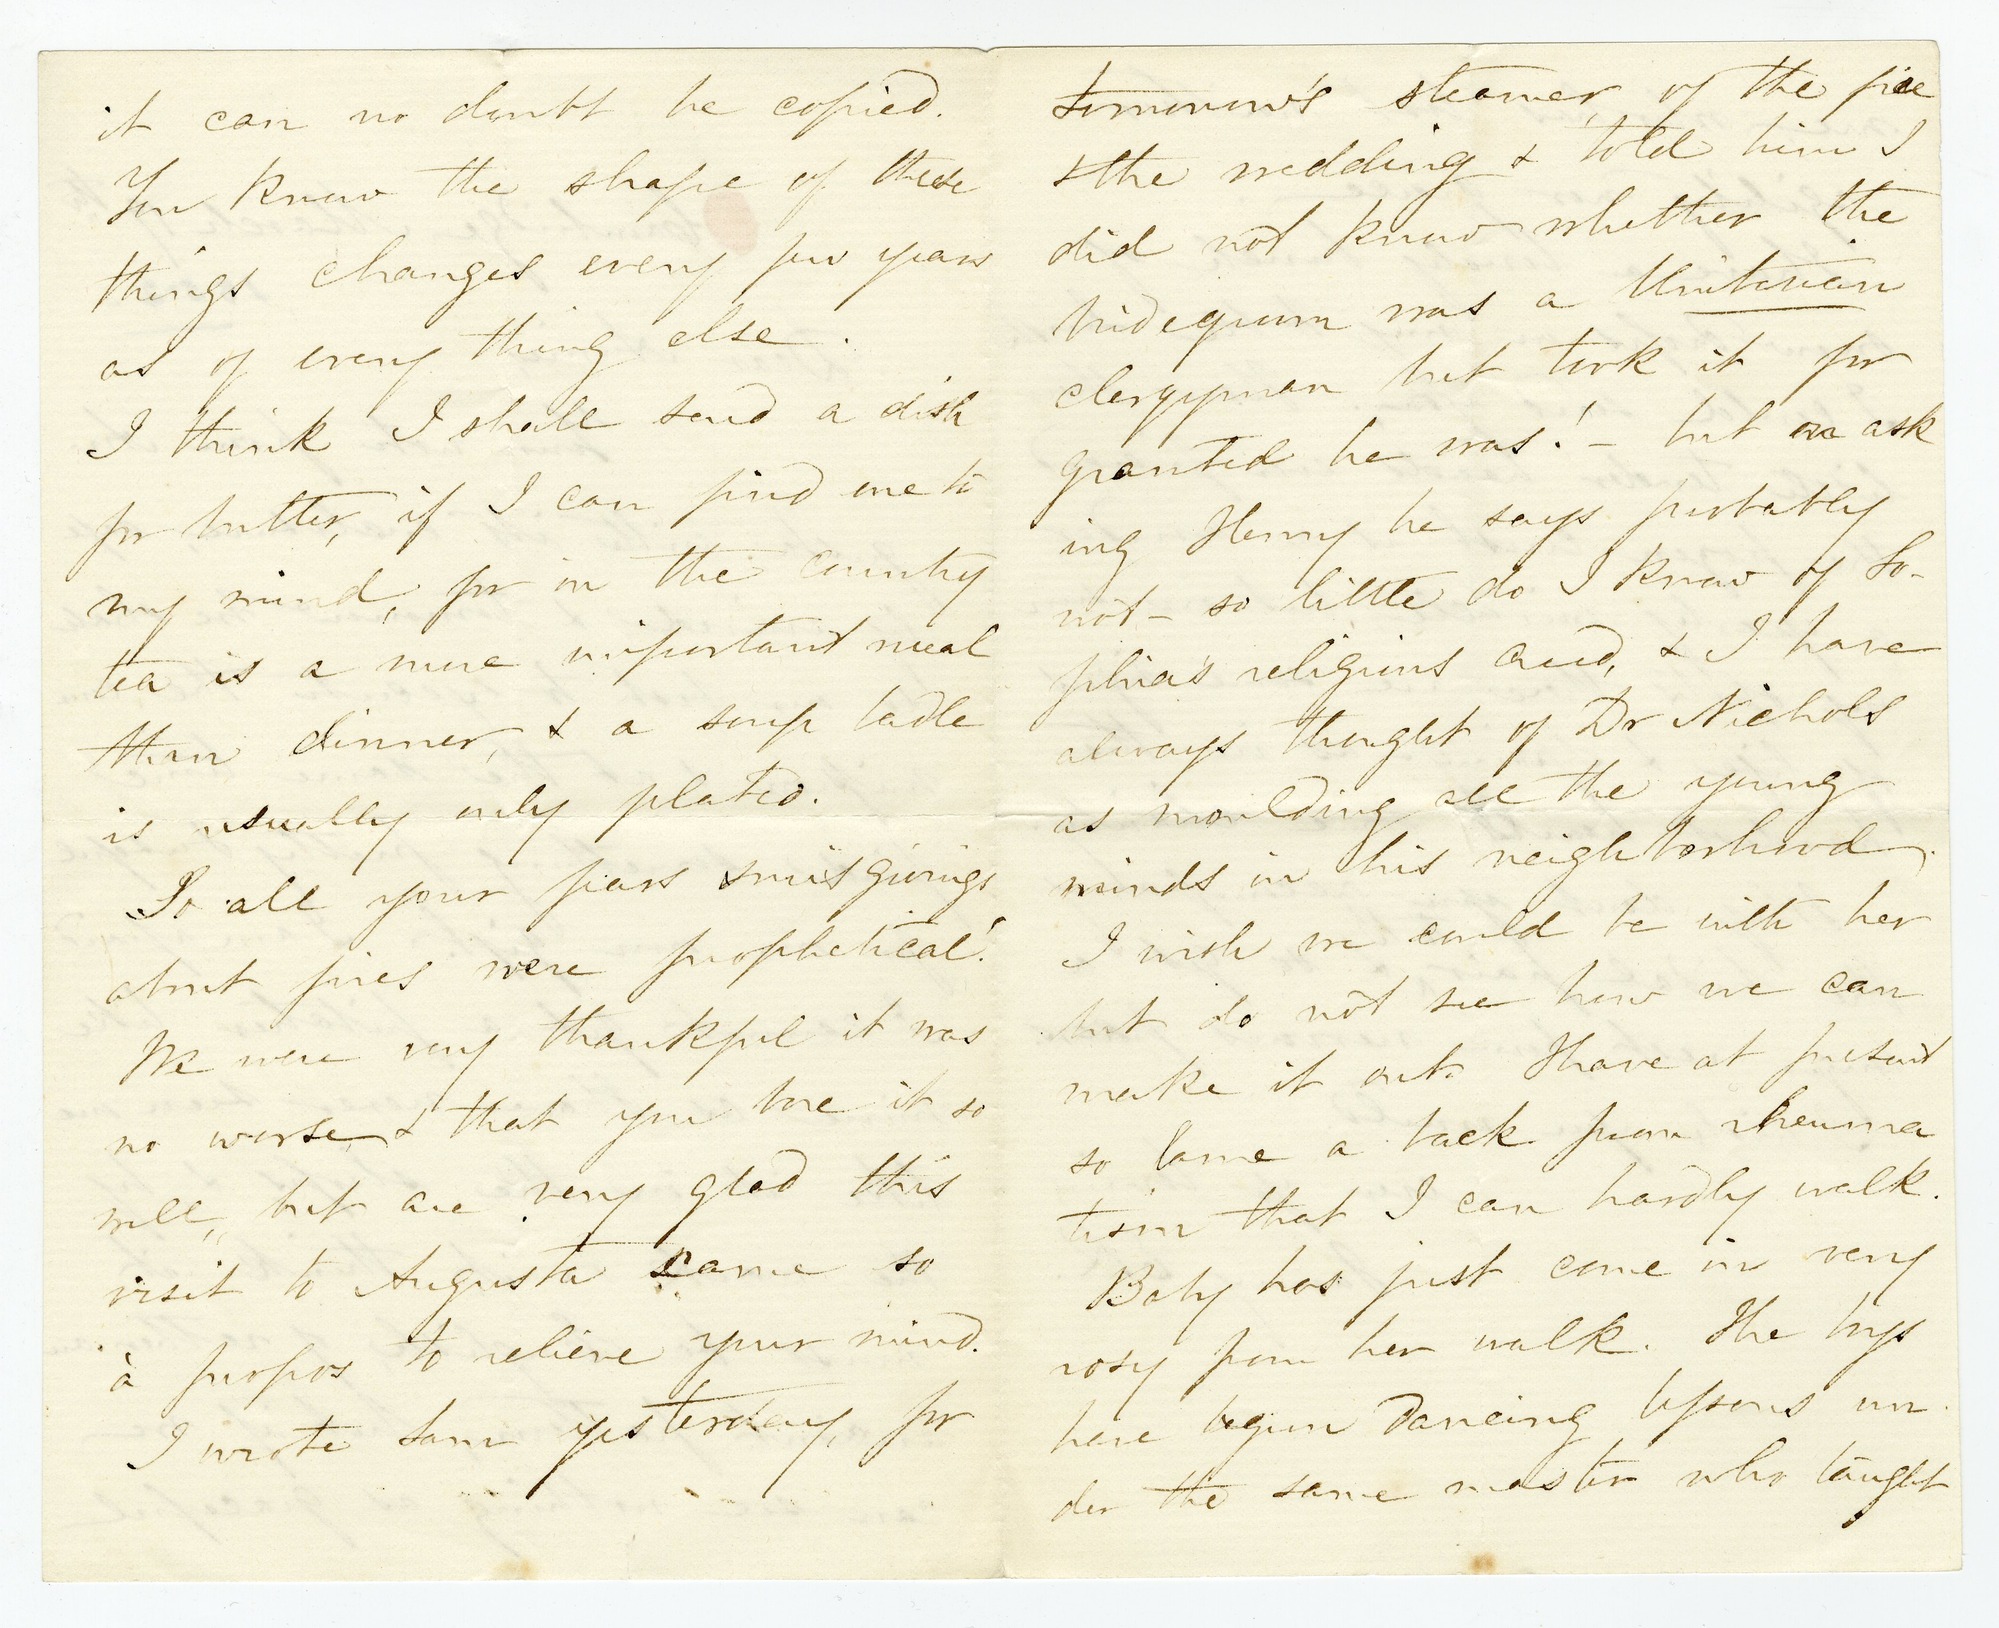 it can no doubt be copied.
You know the shape of these
things changes every few years
as of every thing else.
I think I shall send a dish
for butter, if I can find one to
my mind, for in the country
tea is a more important meal
than dinner, & a soup ladle
is usually only plated.
So all your fears & misgivings
about fires were prophetical!
We were very thankful it was
no worse, & that you bore it so
well, but are very glad this
visit to Augusta came so
à propos to relieve your mind.
I wrote Sam yesterday, for
tomorrow's steamer, of the fire
& the wedding & told him I
did not know whether the
bridegroom was a Unitarian
clergyman but took it for
granted he was! - but on ask
ing Henry he says probably
not - so little do I know of So-
phia's religious creed, & I have
always thought of Dr Nichols
as moulding all the young
minds in his neighborhood.
I wish we could be with her
but do not see how we can
make it out. I have at present
so lame a back from rheuma
tism that I can hardly walk.
Baby has just come in very
rosy from her walk. The boys
have begun dancing lessons un-
der the same master who taught